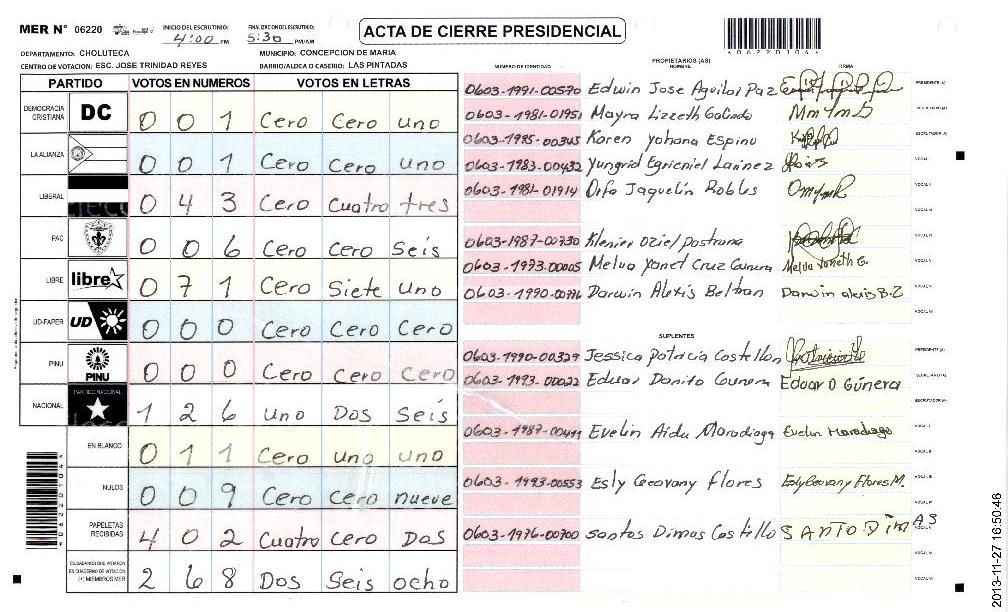 MER N° 06220
INICIO DEL ESCRUTINIO: 4:00 PM
FINALIZACION DEL ESCRUTINIO: 5:30 PM/AM
ACTA DE CIERRE PRESIDENCIAL
DEPARTAMENTO: CHOLUTECA
MUNICIPIO: CONCEPCION DE MARIA
CENTRO DE VOTACION: ESC. JOSE TRINIDAD REYES
BARRIO/ALDEA O CASERIO: LAS PINTADAS
PARTIDO VOTOS EN NUMEROS VOTOS EN LETRAS
DEMOCRACIA CRISTIANA DC 0 0 1 Cero Cero uno
LA ALIANZA 0 0 1 Cero Cero uno
LIBERAL 0 4 3 Cero Cuatro tres
PAC 0 0 6 Cero Cero Seis
LIBRE libre 0 7 1 Cero Siete uno
UD-FAPER UD 0 0 0 Cero Cero Cero
PINU PINU 0 0 0 Cero Cero Cero
NACIONAL PARTIDO NACIONAL 1 2 6 uno Dos Seis
EN BLANCO 0 1 1 Cero uno uno
NULOS 0 0 9 Cero Cero nueve
PAPELETAS RECIBIDAS 4 0 2 Cuatro Cero Dos
CIUDADANOS QUE VOTARON EN CUADERNO DE VOTACION (+) MIEMBROS MER 2 6 8 Dos Seis ocho
NUMERO DE IDENTIDAD PROPIETARIOS (AS) NOMBRE FIRMA
0603-1991-00570 Edwin Jose Aguilar Paz PRESIDENTE (A)
0603-1981-01951 Mayra Lizzeth Galindo
0603-1995-00345 Karen Yohana Espino ESCRUTADOR (A)
0603-1983-00432 Yungrid Lainez VOCAL I
0603-1981-01914 Jaquelin Robles VOCAL II
VOCAL III
0603-1987-00730 Klenier Oziel pastrana VOCAL IV
0603-1973-00005 Melva Yanet Cruz Gunera Melva Yaneth G. VOCAL V
0603-1990-00776 Darwin Alexis Beltran Darwin alexis B.Z VOCAL VI
VOCAL VII
SUPLENTES
0603-1990-00329 Jessica Castellon PRESIDENTE (A)
0603-1993-00022 Eduar Danilo Gunera Eduar D Gúnera SECRETARIO (A)
ESCRUTADOR (A)
0603-1987-00411 Evelin Aida Maradiaga Evelin Maradiaga VOCAL I
VOCAL II
0603-1993-00553 Esly Geovany flores Esly Geovany Flores M. VOCAL III
VOCAL IV
0603-1976-00700 santos Dimas Castillo SANTO DIMAS VOCAL V
VOCAL VI
VOCAL VII
4062201044
2013-11-27 16:50:46